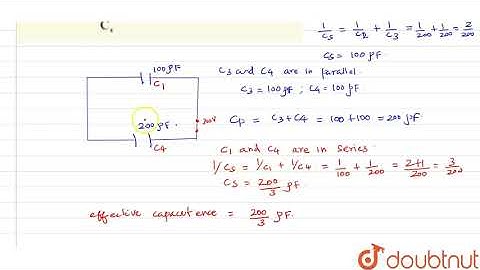 C₁
1/Cs = 1/C2 + 1/C3 = 1/200 + 1/200 = 2/200
Cs = 100 pF
100pF
C1
C3 and C4 are in parallel.
C3 = 100pF ; C4 = 100pF
200pF.
C4
Cp = C3+C4 = 100+100 = 200pF
C1 and C4 are in series
1/Cs = 1/C1 + 1/C4 = 1/100 + 1/200 = 2+1/200 = 3/200
Cs = 200/3 pF
effective capacitence = 200/3 pF.
doubtnut